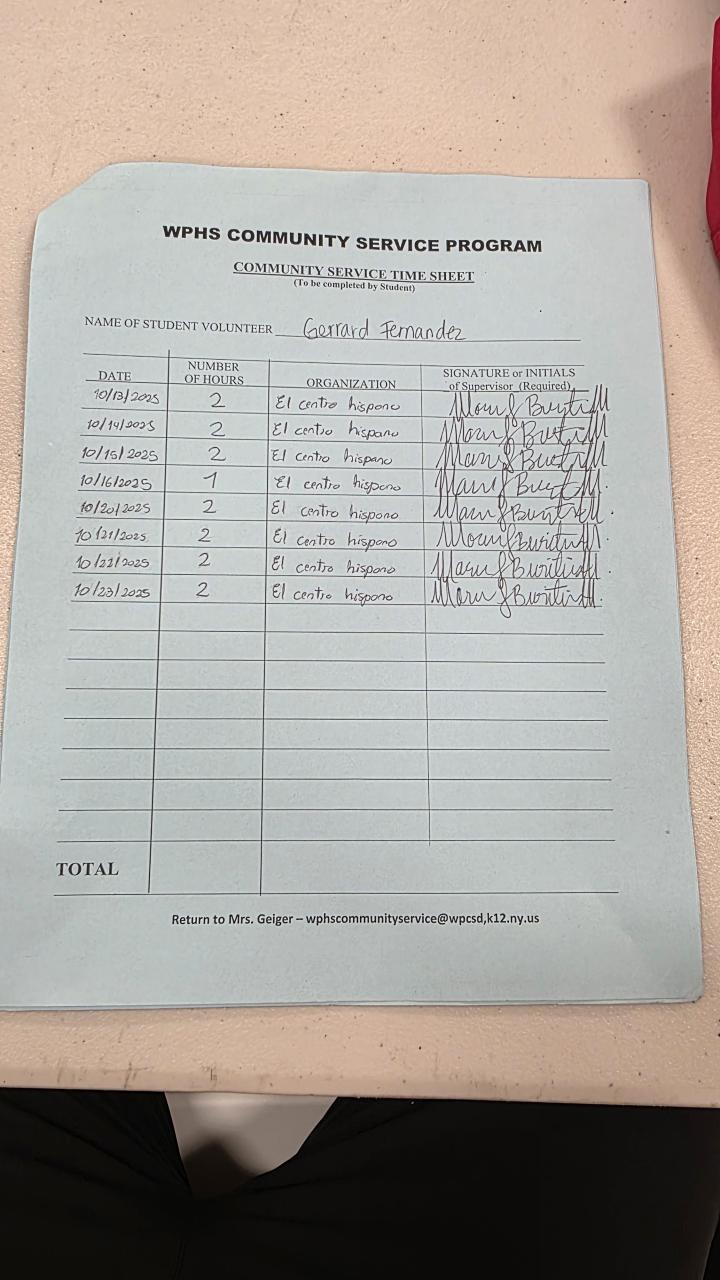 WPHS COMMUNITY SERVICE PROGRAM
COMMUNITY SERVICE TIME SHEET
(To be completed by Student)
NAME OF STUDENT VOLUNTEER Gerrard Fernandez
DATE NUMBER OF HOURS ORGANIZATION SIGNATURE or INITIALS of Supervisor (Required)
10/13/2025 2 El centro hispano
10/14/2025 2 El centro hispano
10/15/2025 2 El centro hispano
10/16/2025 1 El centro hispano
10/20/2025 2 El centro hispano
10/21/2025 2 El centro hispano
10/22/2025 2 El centro hispano
10/23/2025 2 El centro hispano
TOTAL
Return to Mrs. Geiger – wphscommunityservice@wpcsd,k12.ny.us